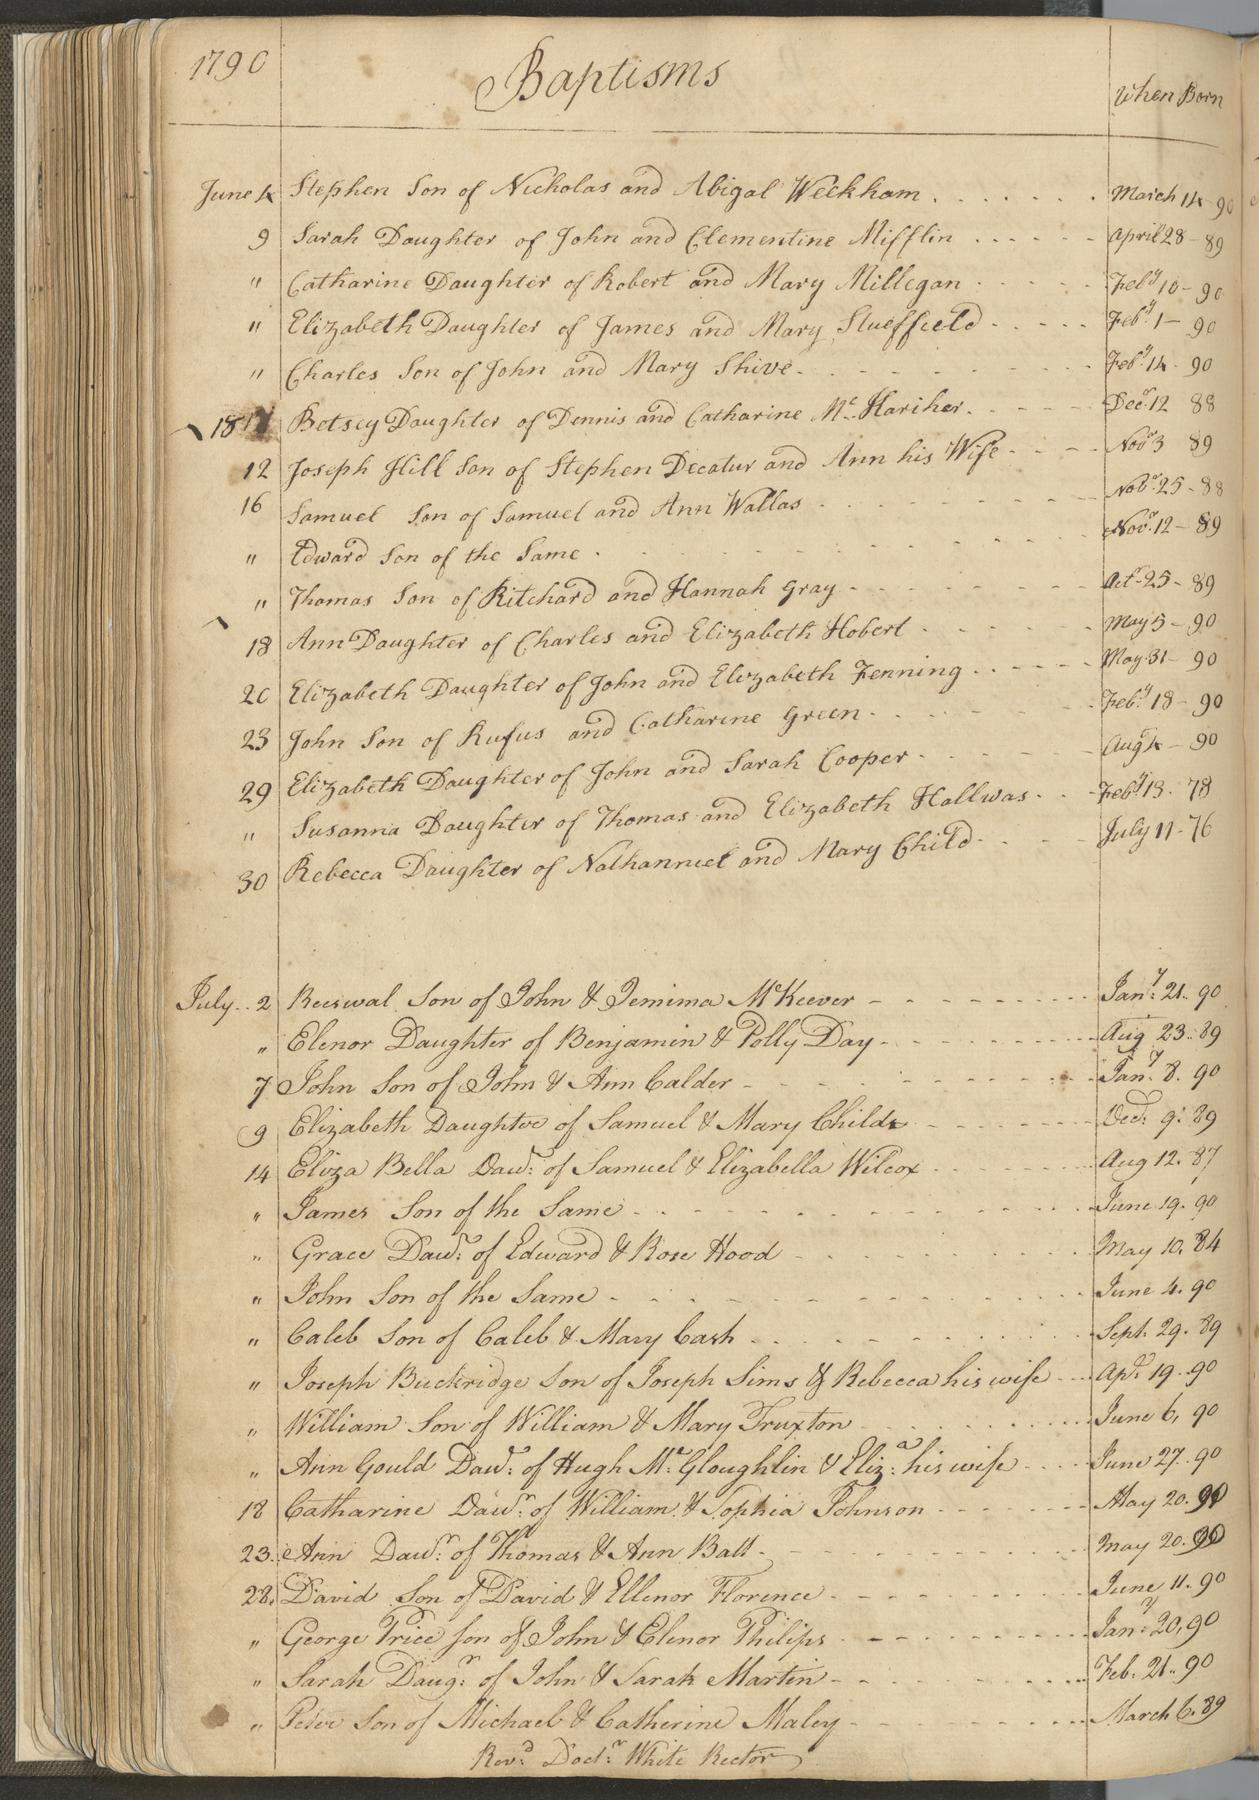 1790 Baptisms When Born
June 4 Stephen Son of Nicholas and Abigal Weekham . . . . . . . March 14 - 90
9 Sarah Daughter of John and Clementine Mifflin . . . . . . April 28 - 89
" Catharine Daughter of Robert and Mary Millegan . . . . . Feby 10 - 90
" Elizabeth Daughter of James and Mary Stueffield . . . . . Feby 1 - 90
" Charles Son of John and Mary Shive . . . . . . . Feby 14 - 90
18 Betsey Daughter of Dennis and Catharine Mc Hariher . . . . Decr 12 88
12 Joseph Hill Son of Stephen Decatur and Ann his Wife . . . . Novr 3 89
16 Samuel Son of Samuel and Ann Wallas . . . . . . Nobr 25 - 88
" Edward Son of the Same . . . . . . . . Novr 12 - 89
" Thomas Son of Ritchard and Hannah Gray . . . . . . Octr 25 - 89
18 Ann Daughter of Charles and Elizabeth Hobert . . . . . May 5 - 90
20 Elizabeth Daughter of John and Elizabeth Fenning . . . . . May 31 - 90
23 John Son of Rufus and Catharine Green . . . . . . Feby 18 - 90
29 Elizabeth Daughter of John and Sarah Cooper . . . . . Augt 4 - 90
" Susanna Daughter of Thomas and Elizabeth Hallwas . . . Feby 13 - 78
30 Rebecca Daughter of Nathannuel and Mary Child . . . . July 11 - 76
July . . 2 Reeswal Son of John & Jemima McKeever - - - - - - Jany 21. 90
" Elenor Daughter of Benjamin & Polly Day - - - - - - Aug 23. 89
7 John Son of John & Ann Calder - - - - - - - Jany 8. 90
9 Elizabeth Daughter of Samuel & Mary Childs - - - - - Dec: 9: 89
14 Eliza Bella Dawr: of Samuel & Elizabella Wilcox - - - - Aug 12. 87
" James Son of the Same - - - - - - - - June 19. 90
" Grace Dawr: of Edward & Rose Hood - - - - - - May 10. 84
" John Son of the Same - - - - - - - - June 4. 90
" Caleb Son of Caleb & Mary Cash - - - - - - - Sept. 29. 89
" Joseph Buckridge Son of Joseph Sims & Rebecca his wife - - - Apl 19 . 90
" William Son of William & Mary Truxton - - - - - - June 6, 90
" Ann Gould Dawr: of Hugh Mc Gloughlin & Eliza: his wife - - - - June 27. 90
18 Catharine Dawr: of William & Sophia Johnson - - - - - May 20. 90
23. Ann Dawr: of Thomas & Ann Ball - - - - - - May 20. 90
28. David Son of David & Ellenor Florence - - - - - - June 11. 90
" George Price Son of John & Elenor Philips - - - - - - Jany: 20, 90
" Sarah Daugr: of John & Sarah Martin - - - - - - Feb. 21. 90
" Peter Son of Michael & Catherine Maley - - - - - - March 6. 89
Revd Doctr: White Rector